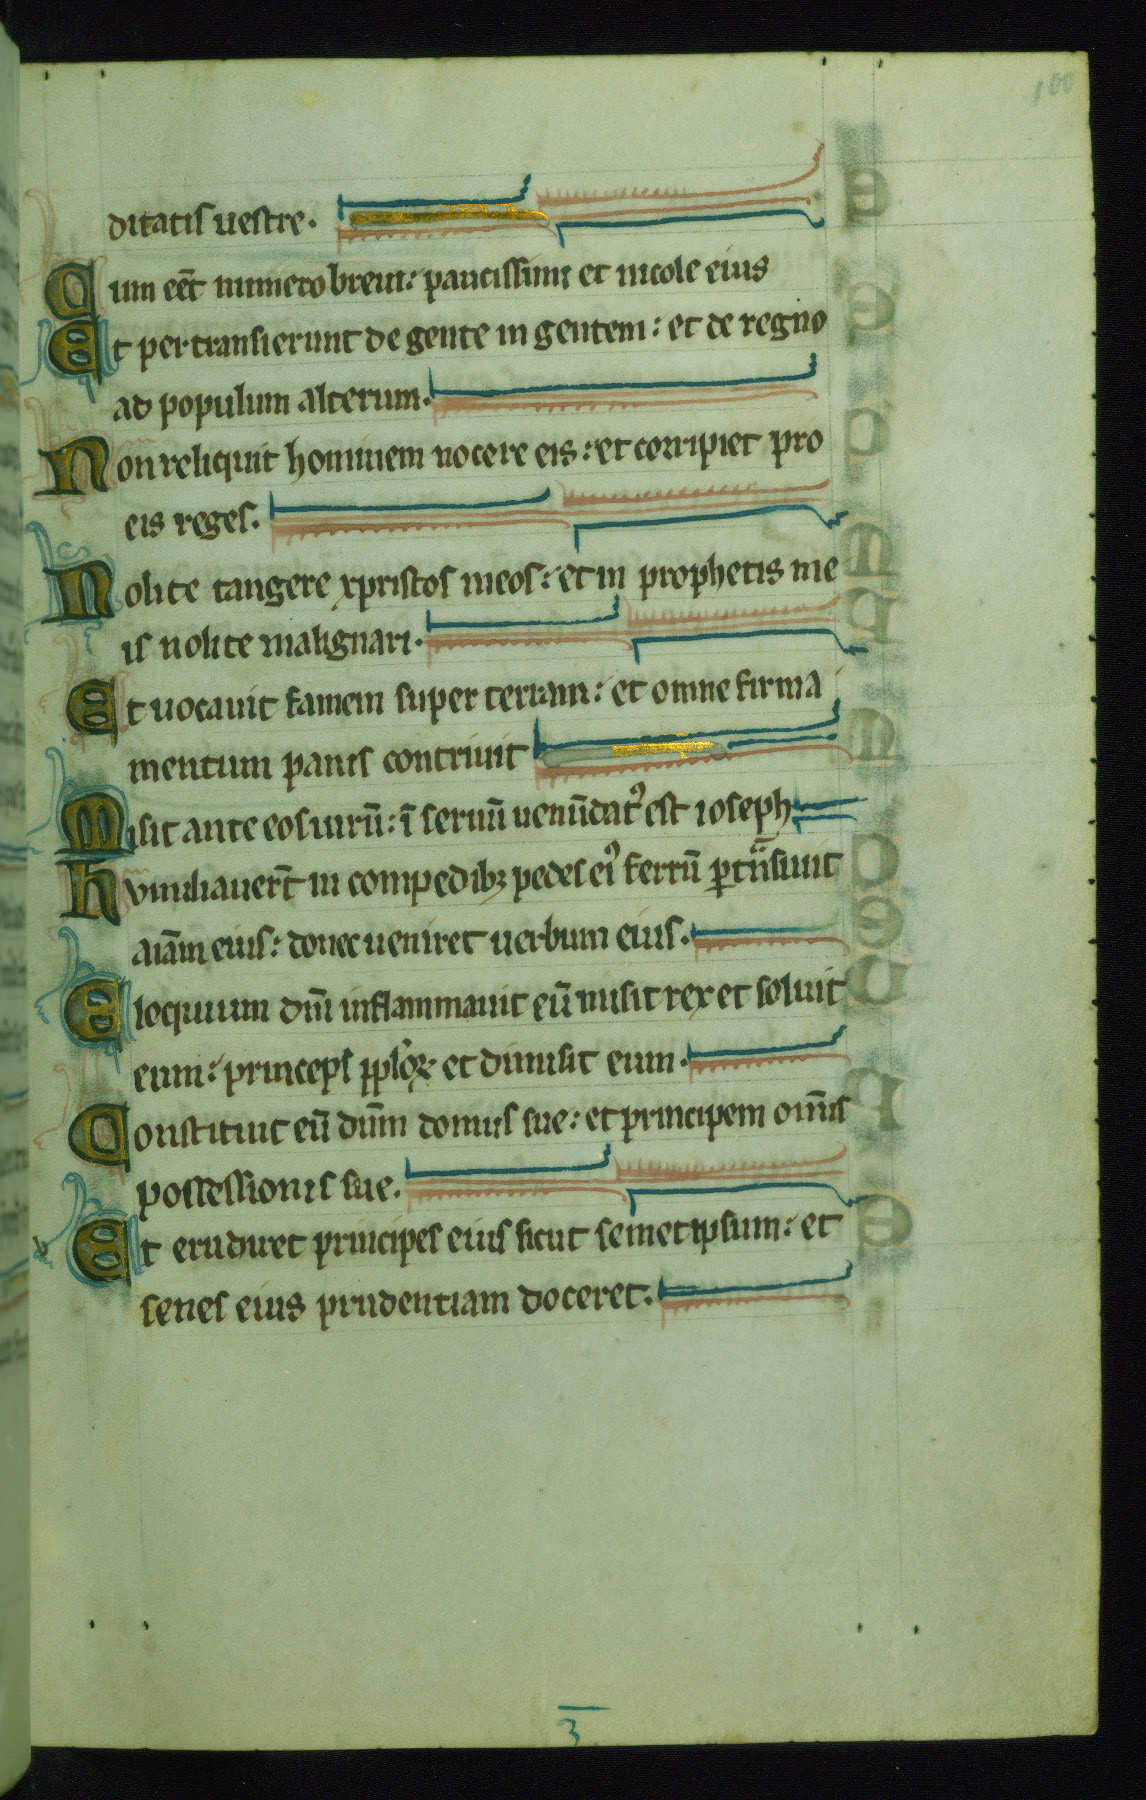 100
ditatis uestre.
Cum eēt numero breui: paucissimi et incole eius
Et pertransierunt de gente in gentem: et de regno
ad populum alterum.
Non reliquit hominem nocere eis: et corripiet pro
eis reges.
Nolite tangere xpristos meos: et in prophetis me
is nolite malignari.
Et uocauit famem super terram: et omne firma
mentum panis contriuit
Misit ante eos uirū: ī seruū uenūdat᾽ est ioseph
Humiliauer̄t in compedibꝫ pedes ei᾽ ferrū ꝑtn̄siuit
aīam eius: donec ueniret uerbum eius.
Eloquium dn̄i inflammauit eū misit rex et soluit
eum: princeps pplōꝝ et dimisit eum.
Constituit eū dn̄m domus sue: et principem om̄is
possessionis sue.
Et erudiret principes eius sicut semetipsum: et
senes eius prudentiam doceret.
3